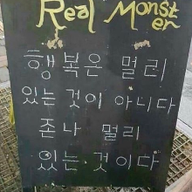 Real Monst
er
행복은 멀리
있는 것이 아니다
존나 멀리
있는 것이다